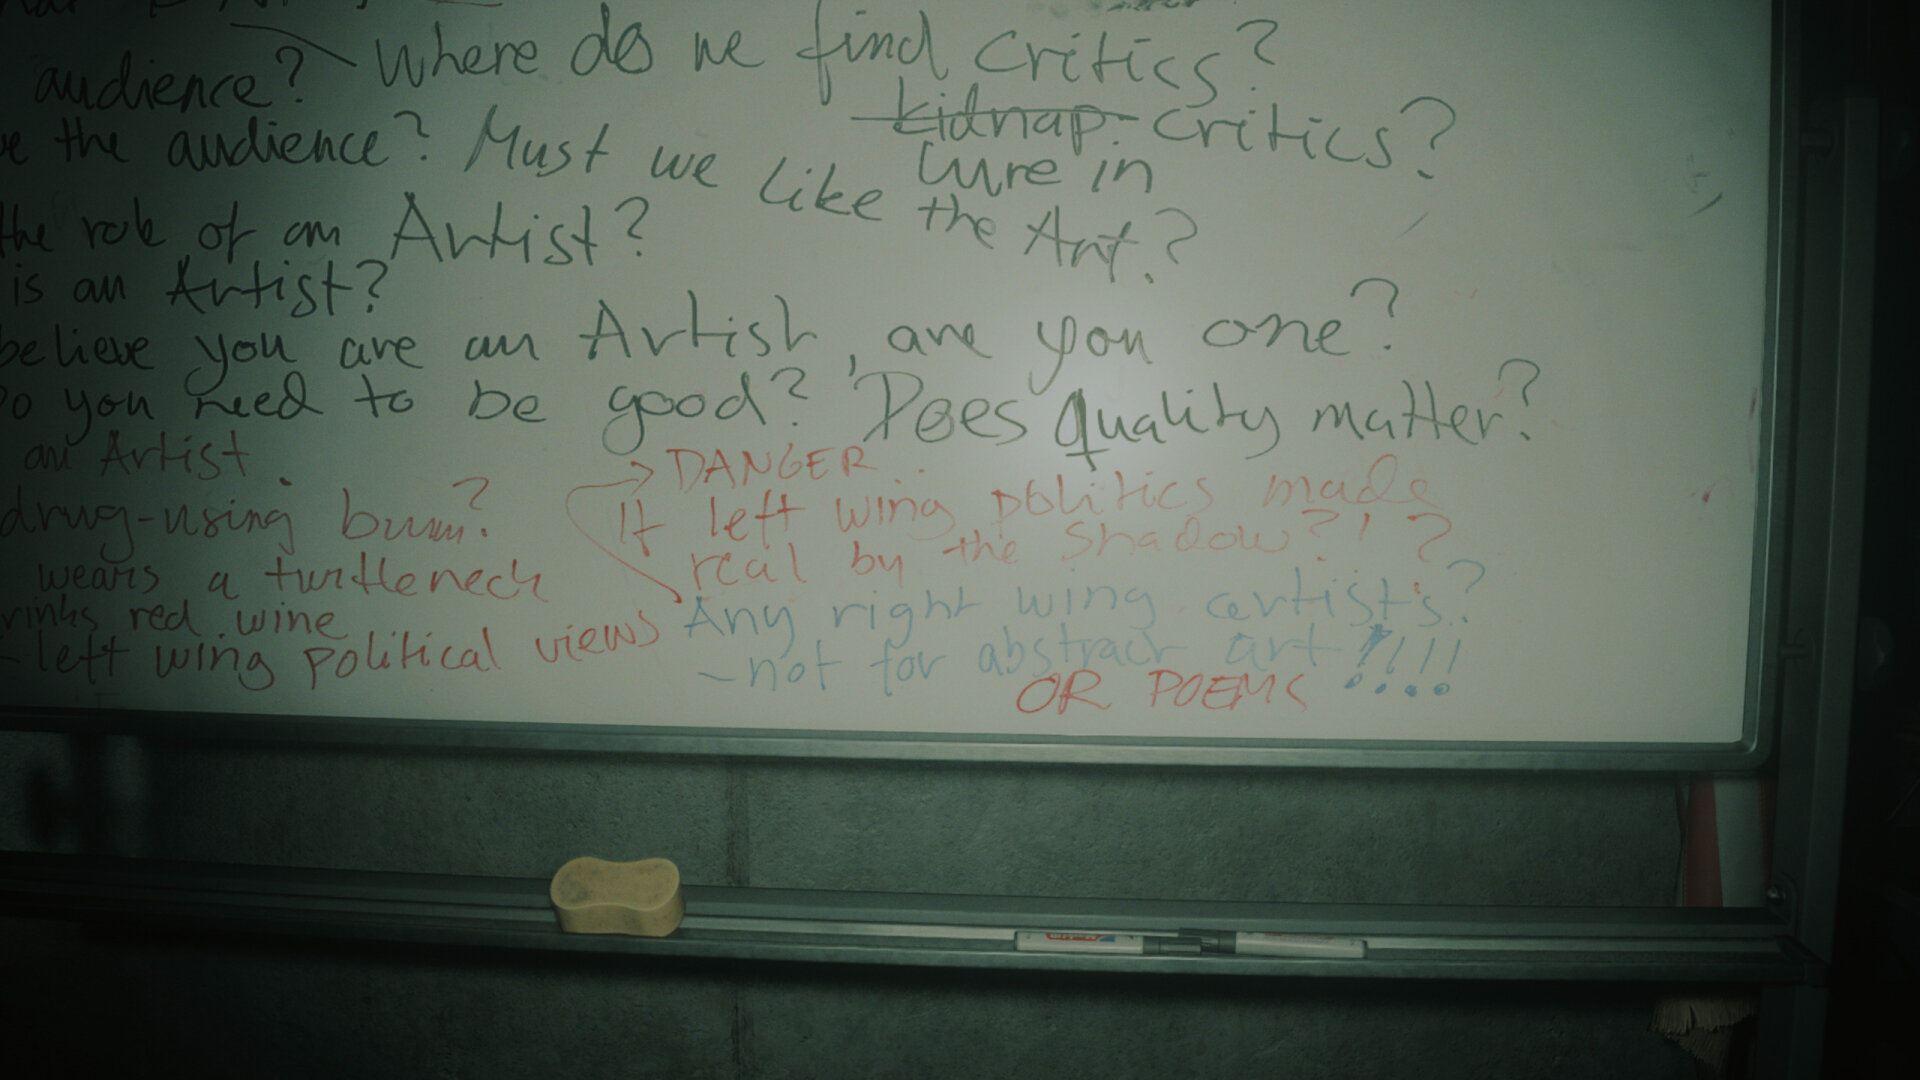 audience? Where do we find critics?
kidnap critics?
e the audience? Must we like lure in
the role of an Artist? the Art?
is an Artist?
believe you are an Artist, are you one?
Do you need to be good? Does quality matter?
an Artist.
DANGER
drug-using bum? If left wing politics made
wears a turtleneck real by the Shadow?!?
rinks red wine Any right wing artists?
-left wing political views -not for abstract art!!!!
OR POEMS